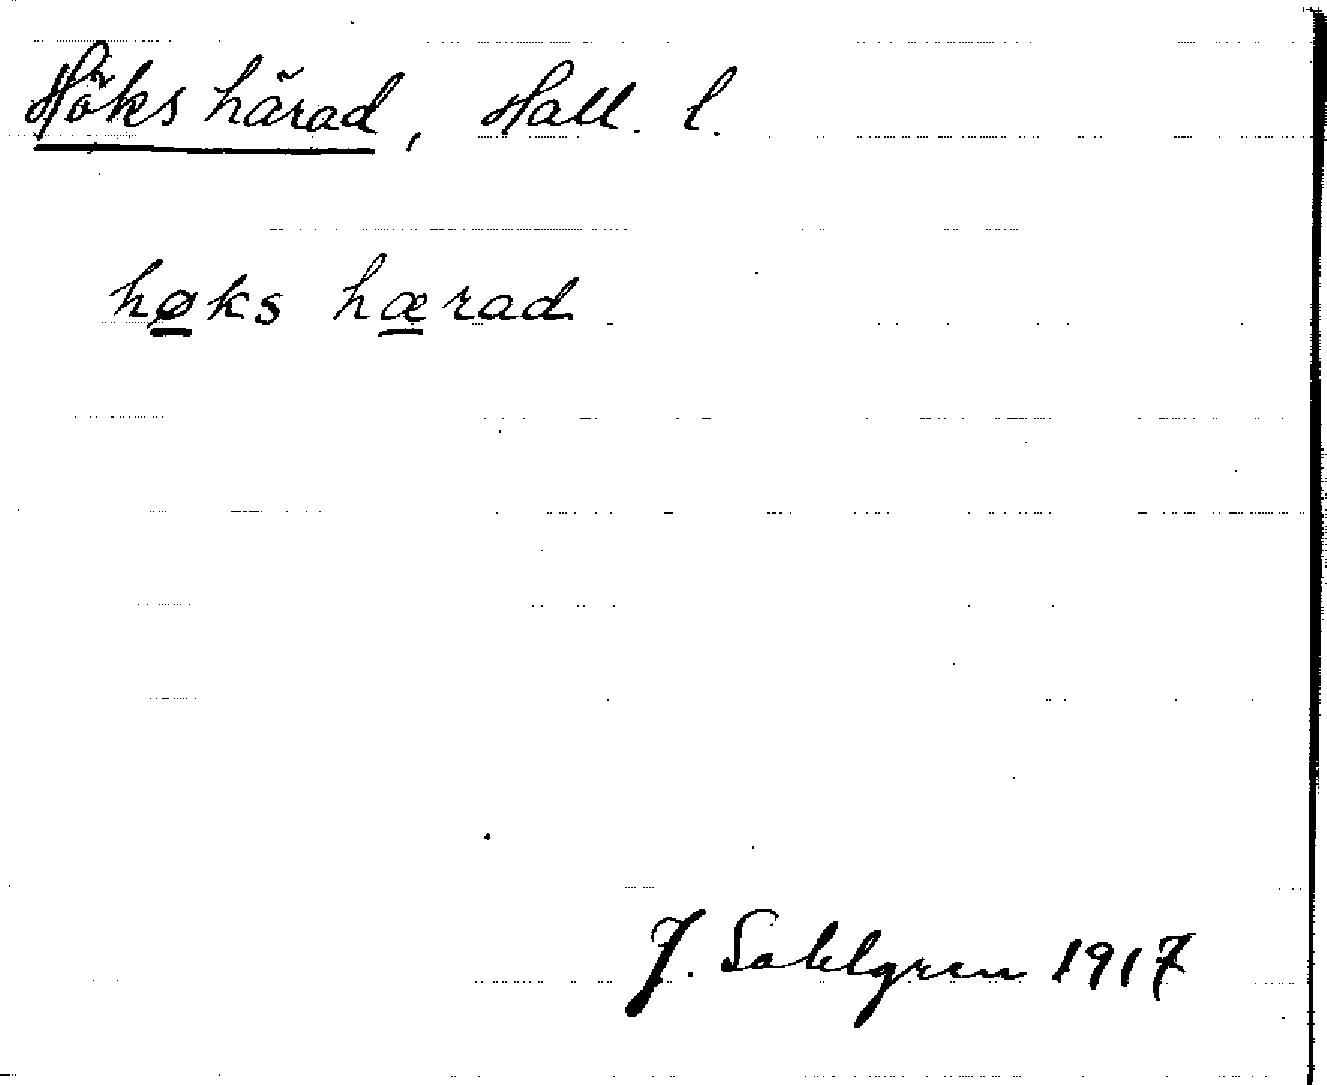 Höks härad, Hall. l.
høks hærad
J. Sahlgren 1917